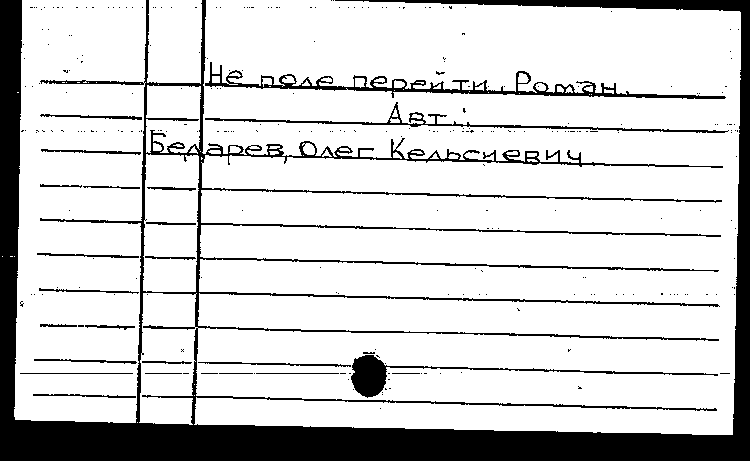 Не поле перейти. Роман.
Авт.:
Бедарев, Олег Кельсиевич.